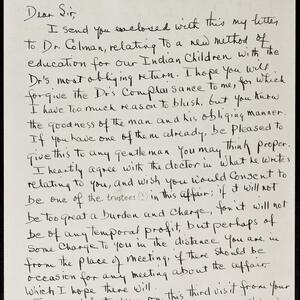 Dear Sir,
I send you enclosed with this my letter
to Dr. Colman, relating to a new method of
education for our Indian Children with the
Dr's most obliging return. I hope you will
forgive the Dr's Complaisance to me, for which
I have too much reason to blush, but you know
the goodness of the man and his obliging manner.
If you have one of them already, be pleased to
give this to any gentleman you may think proper.
I heartily agree with the doctor in what he writes
relating to you, and wish you would Consent to
be one of the trustees [?] in this affair; if it will not
be too great a burden and Charge, for it will not
be of any temporal profit, but perhaps of
Some Charge to you in the distance you are in
from the place of meeting, if there should be
occasion for any meeting about the affair,
Which I hope there will.
on, this third visit from your